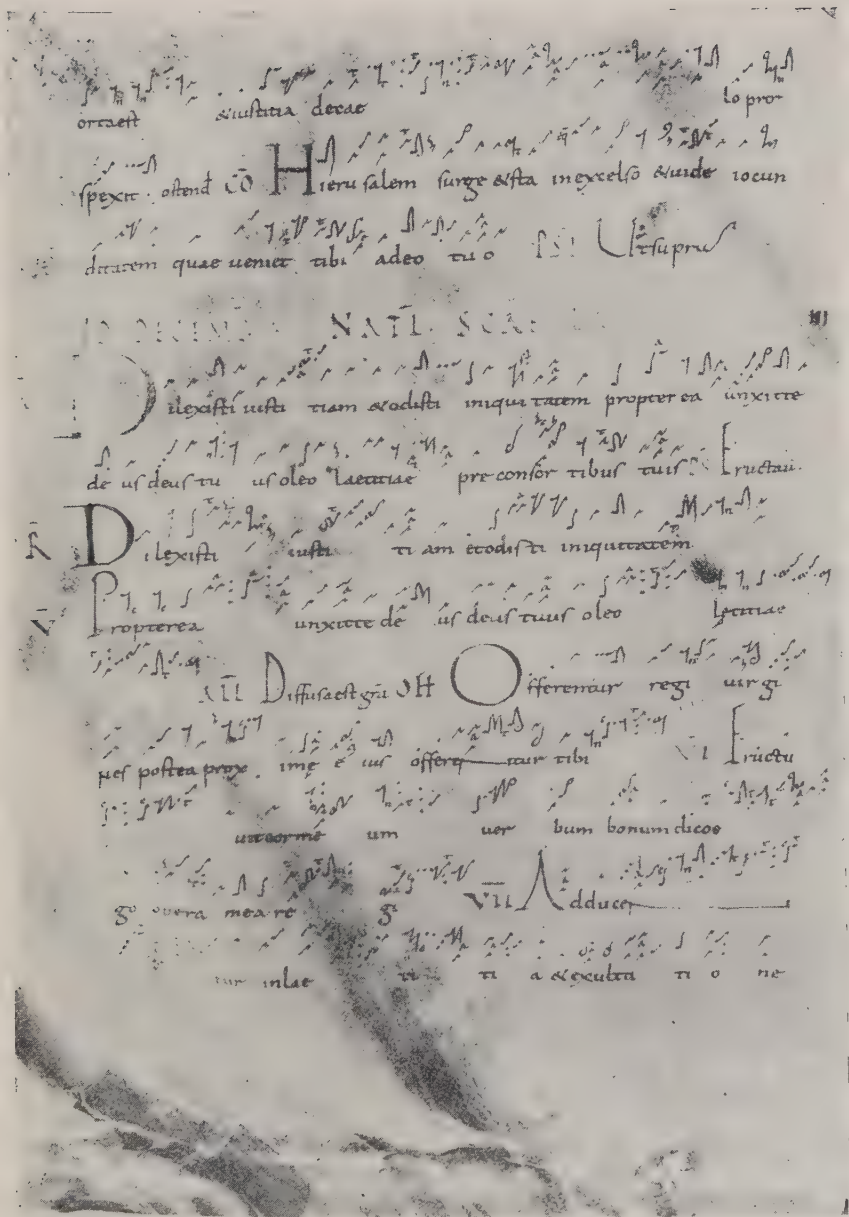 ortaest &iustitia decae lo pro
spexit ostend CŌ Hieru salem surge &sta inexcelso &uide iocun
ditatem quae ueniet tibi adeo tuo PSL Utsupra
NATL SCĀ
Dilexisti iusti tiam &odisti iniquitatem propterea unxitte
de us deus tu us oleo laetitiae pre consor tibus tuis Eructau
R Dilexisti iusti ti am etodisti iniquitatem
V Propterea unxitte de us deus tuus oleo letitiae
ALL Diffusaest grā OFF Offerentur regi uirgi
nes postea prox ime e ius offerentur tibi VI Eructu
uitcormé um uer bum bonum dicoe
go opera mea re gi VII Adducen
tur inlae ti ti a &exulta ti o ne